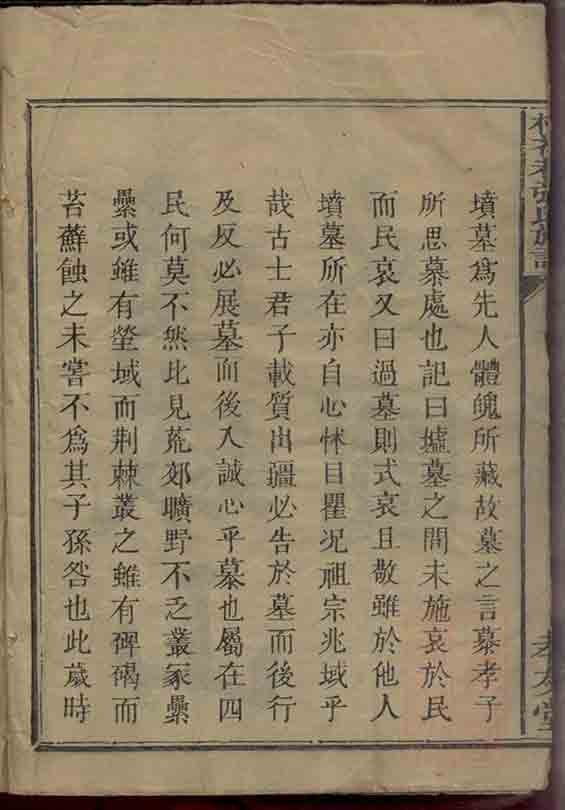 墳墓爲先人體魄所藏故墓之言慕孝子
所思慕處也記曰墟墓之間未施哀於民
而民哀又曰過墓則式哀且敬雖於他人
墳墓所在亦自心怵目瞿況祖宗兆域乎
哉古士君子載質出疆必告於墓而後行
及反必展墓而後入誠心乎慕也屬在四
民何莫不然比見荒郊曠野不乏叢冢纍
纍或雖有塋域而荆棘叢之雖有碑碣而
苔蘚蝕之未嘗不爲其子孫咎也此歲時
孝友堂